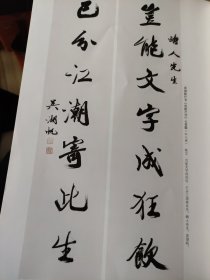 豈能文字成狂飲
詩人先生
已分江潮寄此生
吳湖帆